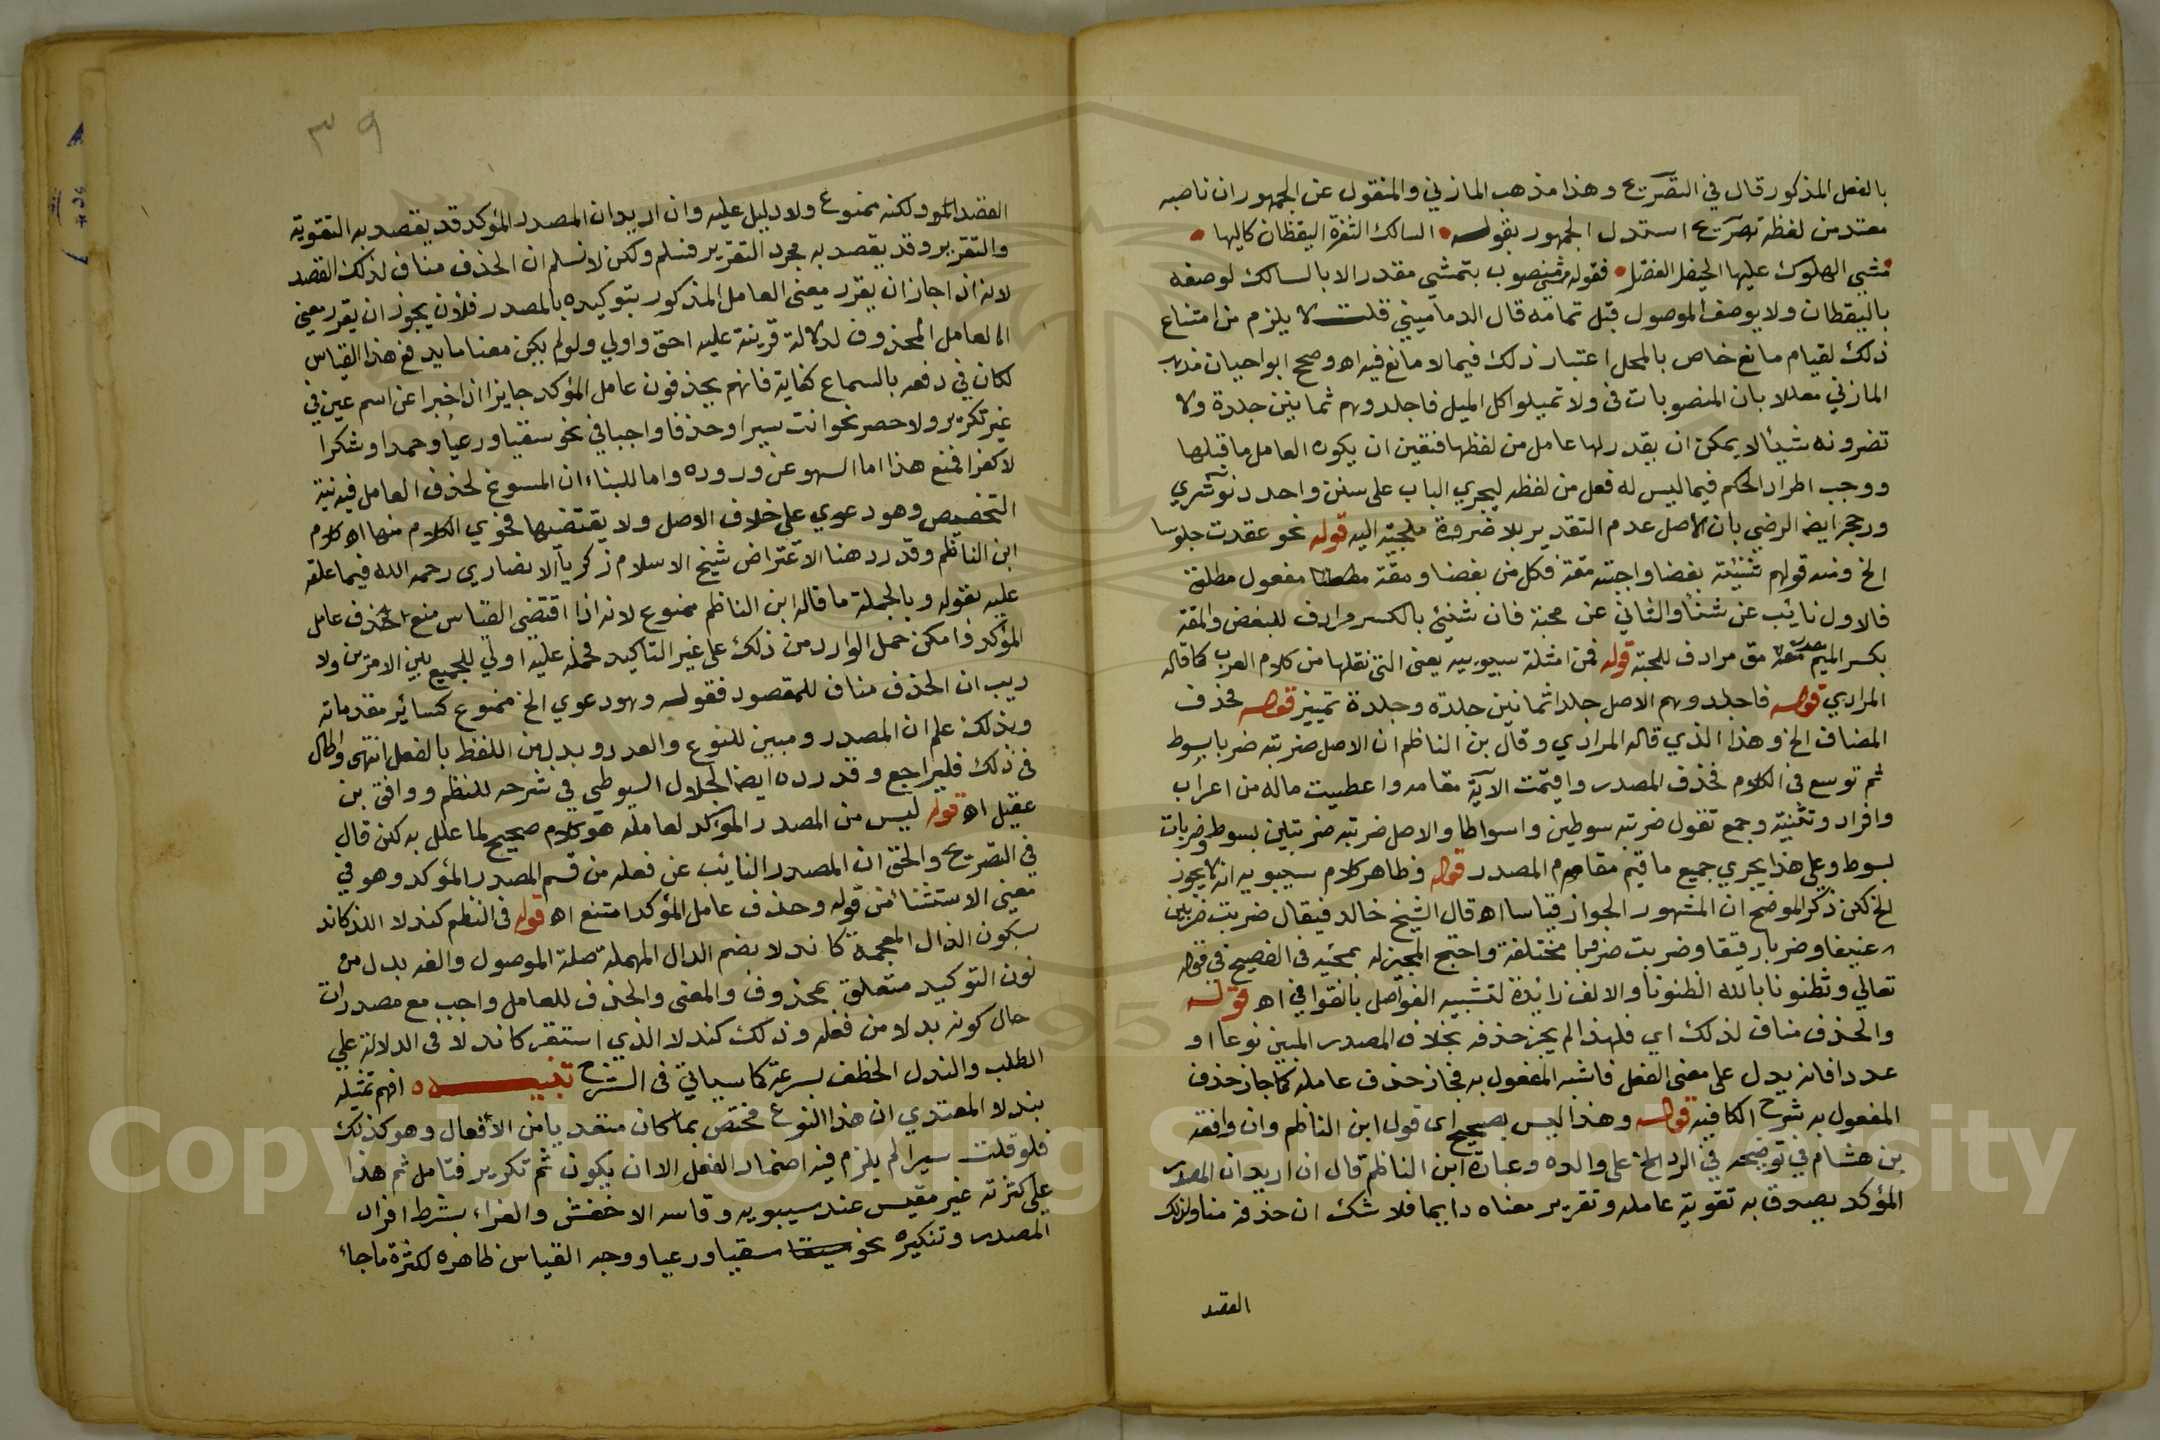 بالفعل المذكور قال في التصريح وهذا مذهب المازني والمنقول عن الجمهور ان ناصبه
مقدر من لفظه تصريح استدل الجمهور بقوله السالك الثغرة اليقظان كاليها
مشي الهلوك عليها الخيعل الفضل فقوله مشي منصوب بتمشي مقدر الا بالسالك لوصفه
باليقظان ولا يوصف الموصول قبل تمامه قال الدماميني قلت لا يلزم من امتناع
ذلك لقيام مانع خاص بالمحل اعتبار ذلك فيما لا مانع فيه اه وصحح ابو احيان مذهب
المازني معللا بان المنصوبات في ولا تميلوا كل الميل فاجلدوهم ثمانين جلدة ولا
تضرونه شيئا لا يمكن ان يقدر لها عامل من لفظها فتعين ان يكون العامل ما قبلها
ووجب اطراد الحكم فيما ليس له فعل من لفظه ليجري الباب على سنن واحد دنوشري
ورجحه ايضا الرضي بان الاصل عدم التقدير بلا ضرورة ملجئة اليه قوله نحو عقدت جلوسا
الخ ومنه قولهم شنئته بغضا واحببته مقة فكل من بغضا ومقة مفعول مطلق
فالاول نايب عن شنأ والثاني عن محبة فان شنئ بالكسر مرادف للبغض والمقة
بكسر الميم مصدر ومق مرادف للمحبة قوله فمن امثلة سيبويه يعني التي نقلها من كلام العرب كما قاله
المرادي قوله فاجلدوهم الاصل جلدا ثمانين جلدة وجلدة تمييز قوله فحذف
المضاف الخ وهذا الذي قاله المرادي وقال بن الناظم ان الاصل ضربته ضربا بسوط
ثم توسع في الكلام فحذف المصدر واقيمت الآية مقامه واعطيت ماله من اعراب
وافراد وتثنية وجمع تقول ضربته سوطين واسواطا والاصل ضربته ضربتين بسوط وضربات
بسوط وعلى هذا يجري جميع ما قيم مقام المصدر قوله وظاهر كلام سيبويه انه لا يجوز
الخ لكن ذكر الموضح ان المشهور الجواز قياسا اه قال الشيخ خالد فيقال ضربت ضربين
عنيفا وضربا رقيقا وضربت ضروبا مختلفة واحتج المجيز له بمجيئه في الفصيح في قوله
تعالي وتظنون بالله الظنونا والالف زايدة لتشبيه الفواصل بالقوافي اه قوله
والحذف مناف لذلك اي فلهذا لم يجز حذفه بخلاف المصدر المبين نوعا او
عددا فانه يدل على معنى الفعل فاشبه المفعول به فجاز حذف عامله كما جاز حذف
المفعول به شرح الكافية قوله وهذا ليس بصحيح اى قول ابن الناظم وان وافقه
بن هشام في توضيحه في الرد الخ على والده وعبارة ابن الناظم قال ان اريد ان المصدر
المؤكد يصدق به تقوية عامله وتقرير معناه دايما فلا شك ان حذفه مناف لذلك
القصد
٣٩
القصد ولكنه ممنوع ولا دليل عليه وان اريد ان المصدر المؤكد قد يقصد به التقوية
والتقرير وقد يقصد به مجرد التقرير فنسلم ولكن لا نسلم ان الحذف مناف لذلك القصد
لانه اذا جاز ان يقرر معنى العامل المذكور بتوكيده بالمصدر فلان يجوز ان يقرر معني
العامل المحذوف لدلالة قرينة عليه احق واولي ولو لم يكن معنا ما يدفع هذا القياس
لكان في دفعه بالسماع كفاية فانهم يحذفون عامل المؤكد جايزا اذا اخبرا عن اسم عين في
غير تكرير ولا حصر نحو انت سيرا وحذفا واجبا في نحو سقيا ورعيا وحمدا وشكرا
لا كفرا فمنع هذا اما السهو عن وروده واما للبناء ان المسوغ لحذف العامل فيه نية
التخصيص وهو دعوي على خلاف الاصل ولا يقتضيها فحوي الكلام منها اه كلام
ابن الناظم وقد رد هنا الاعتراض شيخ الاسلام زكريا الانصاري رحمه الله فيما علقه
عليه بقوله وبالجملة ما قاله ابن الناظم ممنوع لانه اذا اقتضى القياس منع حذف عامل
المؤكد وامكن حمل الوارد من ذلك على غير التاكيد فحمله عليه اولي للجمع بين الامرين ولا
ريب ان الحذف مناف للمقصود فقوله وهو دعوي الخ ممنوع كساير مقدماته
وبذلك علم ان المصدر ومبين للنوع والعدد وبدل من اللفظ بالفعل انتهى واطال
في ذلك فليراجع وقد رده ايضا الجلال السيوطي في شرحه للنظم ووافق بن
عقيل اه قوله ليس من المصدر المؤكد لعامله هو كلام صحيح لما علل به لكن قال
في التصريح والحق ان المصدر النايب عن فعله من قسم المصدر المؤكد وهو في
معني الاستثنا من قوله وحذف عامل المؤكد امتنع اه قوله في النظم كندلا اللذ كاند
بسكون الذال المعجمة كاندلا بضم الدال المهملة صلة الموصول والفه بدل من
نون التوكيد متعلق بمحذوف والمعنى والحذف للعامل واجب مع مصدر ات
حال كونه بدلا من فعله وذلك كندلا الذي استقر كاندلا في الدلالة علي
الطلب والندل الخطف بسرعة كما سياتي في الشرح تنبيه افهم تمثيله
بندلا المعتدي ان هذا النوع مختص بما كان متعديا من الافعال وهو كذلك
فلو قلت سيرا لم يلزم فيه اضمار الفعل الا ان يكون ثم تكرير فتامل ثم هذا
على كثرته غير مقيس عند سيبويه وقاسه الاخفش والفراء بشرط افراد
المصدر وتنكيره نحو سقيا ورعيا ووجه القياس ظاهره لكثرة ما جاء
Copyright © King Saud University